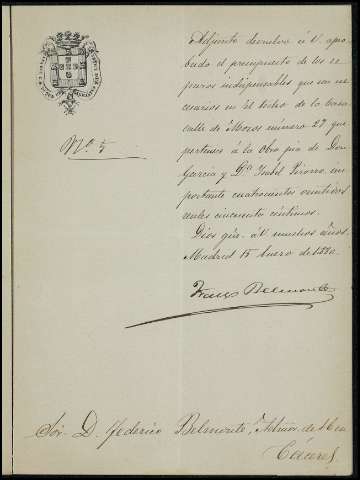 Nº 5
Adjunto devuelvo á V. apro-
bado el presupuesto de los re-
paros indispensables que son ne-
cesarios en el techo de la casa
calle de Moros número 27 que
pertenece á la Obra pia de Don
García y Dª Isabel Pizarro, im-
portante cuatrocientos veintidos
reales cincuenta céntimos.
Dios gûe. á V. muchos años.
Madrid 15 Enero de 1880.
Belmonte
Sor. D. Federico Belmonte, Admor. de
Cáceres